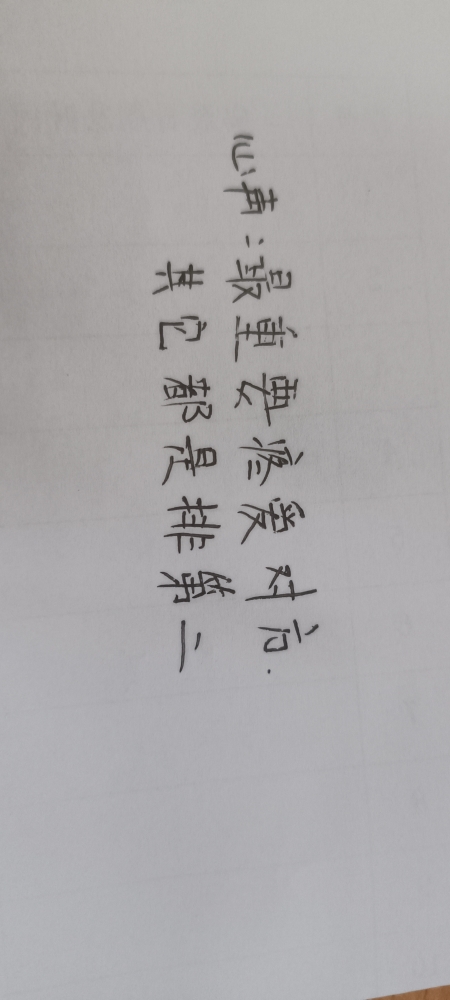 心声:最重要疼爱对方.
其它都是排第二